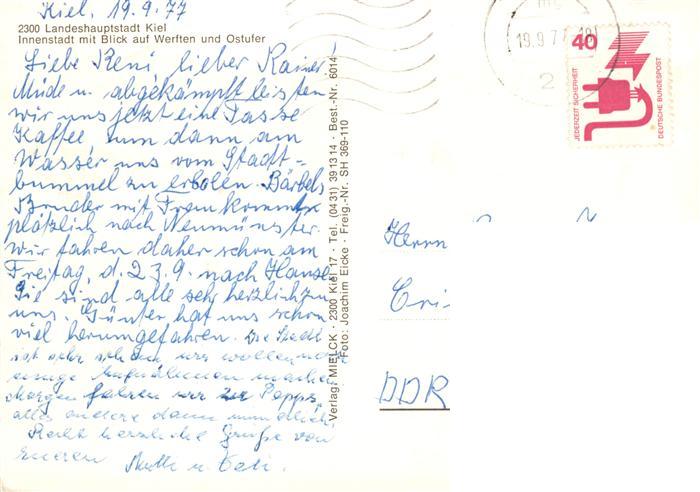 Kiel, 19.9.77
2300 Landeshauptstadt Kiel
Innenstadt mit Blick auf Werften und Ostufer
Liebe Reni, lieber Rainer!
Müde u. abgekämpft leisten
wir uns jetzt eine Tasse
Kaffee um dann am
Wasser uns vom Stadt-
bummel zu erholen. Bärbels
Bruder mit Frau kommt
plötzlich nach Neumünster.
wir fahren daher schon am
Freitag, d. 23.9. nach Hause
Sie sind alle sehr herzlich zu
uns. Günter hat uns schon
viel herumgefahren. Die Stadt
ist sehr schön wir wollen noch
einige Aufnahmen machen
Morgen fahren wir zu Papps,
alles andere dann mündlich.
Recht herzliche Grüße von
eueren
Verlag: MIELCK · 2300 Kiel 17 · Tel. (0431) 39 13 14 · Best.-Nr. 6014
Foto: Joachim Eicko · Freig.-Nr. SH 369-110
19.9.77
2
40
JEDERZEIT SICHERHEIT
DEUTSCHE BUNDESPOST
Herrn
DDR